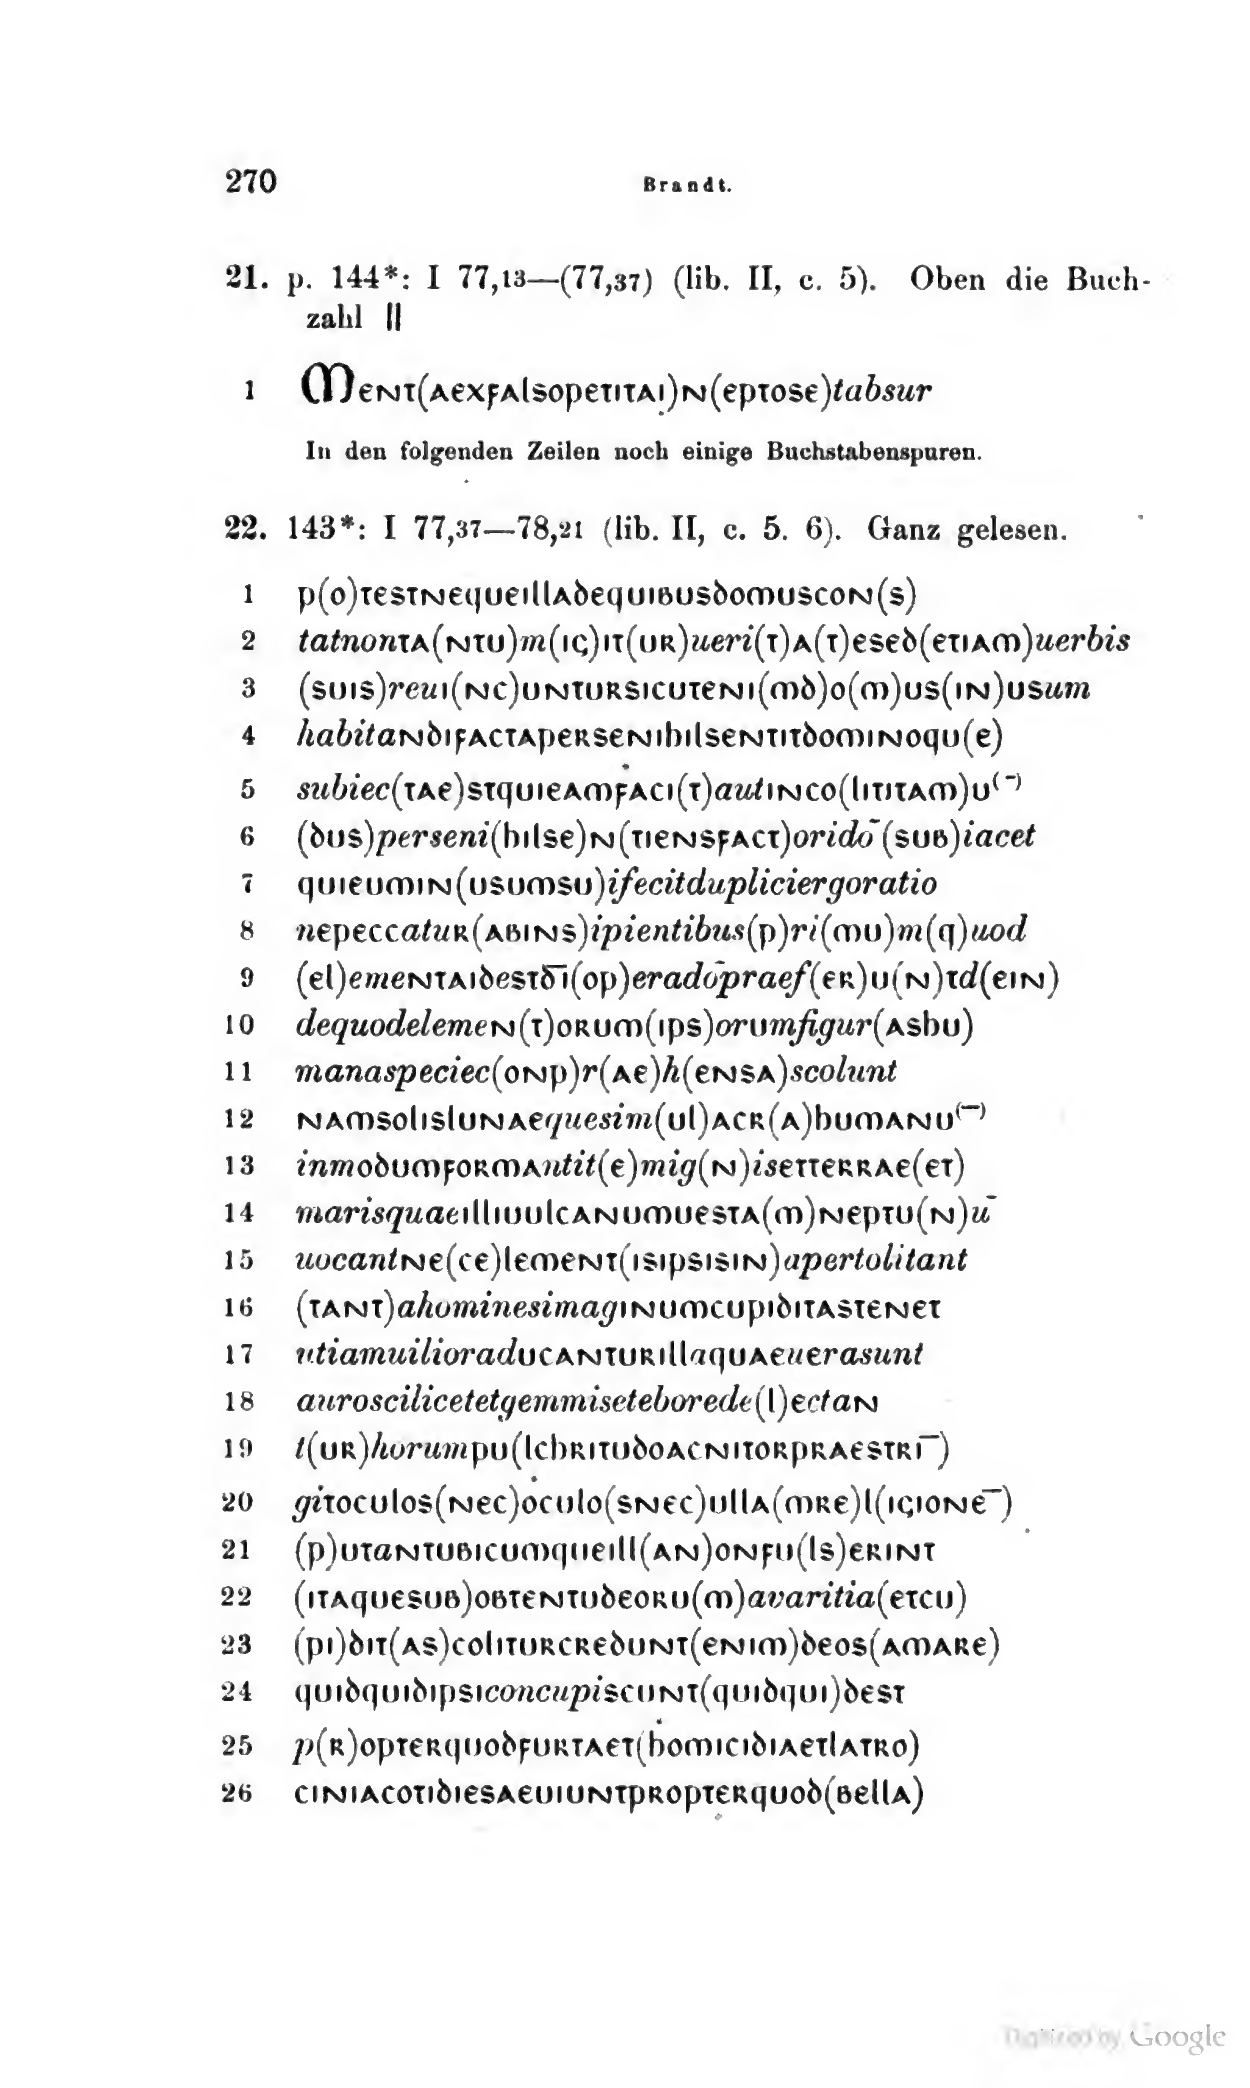 270 Brandt.
21. p. 144*: I 77,13—(77,37) (lib. II, c. 5). Oben die Buch-
zahl II
1 MENT(AEXFALSOPETITAI)N(EPTOSE)tabsur
In den folgenden Zeilen noch einige Buchstabenspuren.
22. 143*: I 77,37—78,21 (lib. II, c. 5. 6). Ganz gelesen.
1 P(O)TESTNEQUEILLADEQUIBUSDOMUSCON(S)
2 tatnonTA(NTU)m(IG)IT(UR)ueri(T)A(T)ESED(ETIAM)uerbis
3 (SUIS)reuI(NC)UNTURSICUTENI(MD)O(M)US(IN)USum
4 habitaNDIFACTAPERSENIHILSENTITDOMINOQU(E)
5 subiec(TAE)STQUIEAMFACI(T)autINCO(LITITAM)U(¯)
6 (DUS)perseni(HILSE)N(TIENSFACT)oridō(SUB)iacet
7 QUIEUMIN(USUMSU)ifecitdupliciergoratio
8 nEPECCatuR(ABINS)ipientibus(P)ri(MU)m(Q)uod
9 (EL)emeNTAIDESTD̄I(OP)eradōpraef(ER)U(N)Td(EIN)
10 dequodelemeN(T)ORUM(IPS)orumfigur(ASHU)
11 manaspeciec(ONP)r(AE)h(ENSA)scolunt
12 NAMSOLISLUNAEquesim(UL)ACR(A)HUMANU(¯)
13 inmODUMFORMAntit(E)mig(N)isETTERRAE(ET)
14 marisquaeILLIUULCANUMUESTA(M)NEPTU(N)ū
15 uocantNE(CE)LEMENT(ISIPSISIN)apertolitant
16 (TANT)ahominesimagINUMCUPIDITASTENET
17 utiamuilioradUCANTURILLaQUAEuerasunt
18 auroscilicetetgemmiseteborede(L)ectaN
19 t(UR)horumPU(LCHRITUDOACNITORPRAESTRI¯)
20 giTOCULOS(NEC)OCULO(SNEC)ULLA(MRE)L(IGIONE¯)
21 (P)UTaNTUBICUMQUEILL(AN)ONFU(LS)ERINT
22 (ITAQUESUB)OBTENTUDEORU(M)avaritia(ETCU)
23 (PI)DIT(AS)COLITURCREDUNT(ENIM)DEOS(AMARE)
24 QUIDQUIDIPSIconcupiSCUNT(QUIDQUI)DEST
25 p(R)OPTERQUODFURTAET(HOMICIDIAETLATRO)
26 CINIACOTIDIESAEUIUNTPROPTERQUOD(BELLA)
Digitized by Google